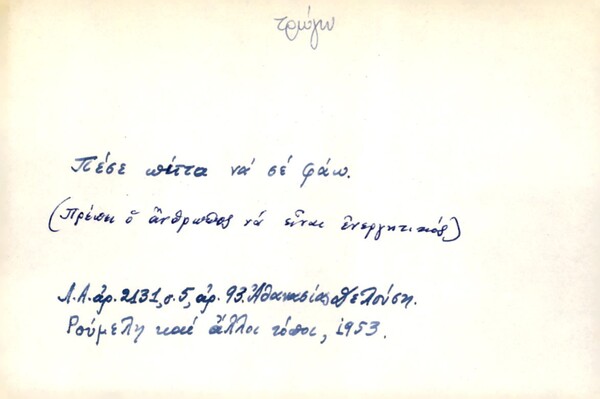 τρώγω
Πέσε πίττα νά σέ φάω.
(Πρέπει ὁ ἄνθρωπος νά εἶναι ἐνεργητικός)
Λ.Α. ἀρ. 2131, σ. 5, ἀρ. 93. Ἀθανασίας
Ρούμελη καί ἄλλοι τόποι, 1953.